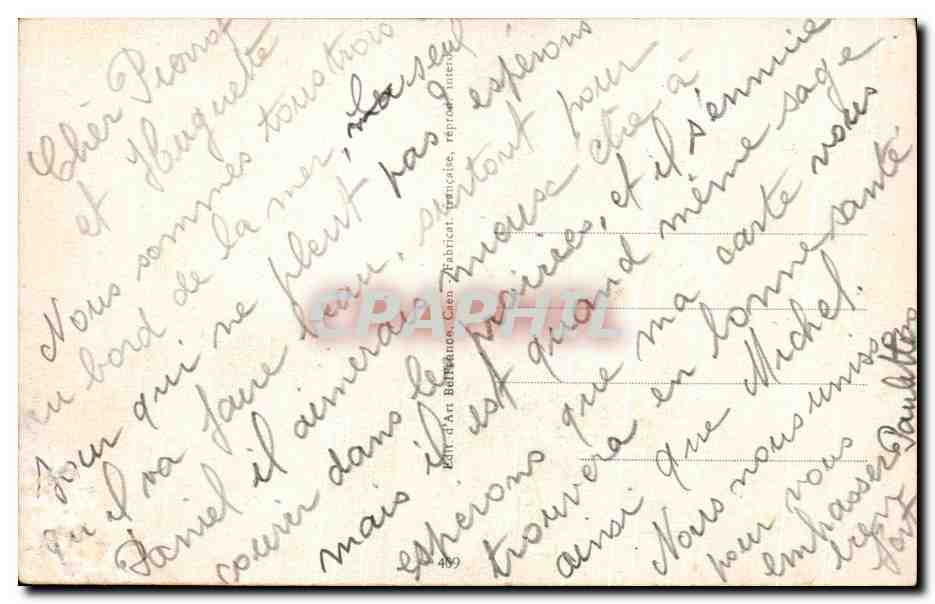 Cher Pierrot
et Huguette
Nous sommes tous trois
au bord de la mer, le seul
jour qui ne pleut pas espérons
qu'il va faire beau, surtout pour
Daniel il aimerais mieux être à
courir dans les prairies, et il s'ennuie
mais il est quand même sage
esperons que ma carte vous
trouvera en bonne santé
ainsi que Michel.
Nous nous unissons
pour vous
embrasser
bien
fort
Paulette
Edit. d'Art Bellfranco, Caen - Fabricat. française, réprod. interd.
409
CPAPHIL